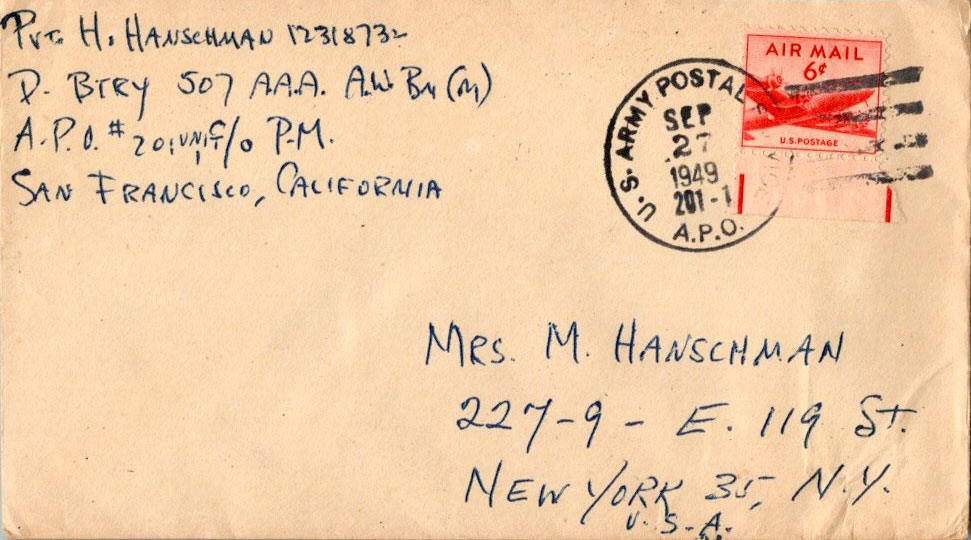 Pvt. H. HANSCHMAN 12318732
D. BTRY 507 A.A.A. A.W. Bn (M)
A.P.O. # 201, UNIT 1 c/o P.M.
SAN FRANCISCO, CALIFORNIA
U.S. ARMY POSTAL
SEP
27
1949
201-1
A.P.O.
AIR MAIL
6¢
U.S. POSTAGE
MRS. M. HANSCHMAN
227-9 - E. 119 St.
NEW YORK 35, N.Y.
U.S.A.